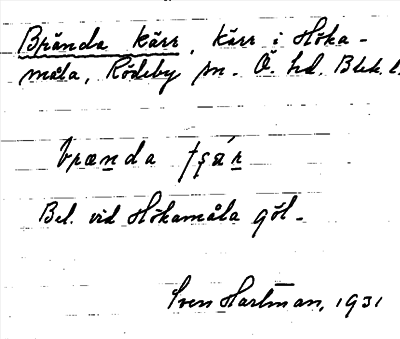 Brända kärr, kärr i Höka-
måla, Rödeby sn. Ö. hd. Blek. l.
brænda tʂǽr
Bel. vid Hökamåla göl.
Sven Hartman, 1931